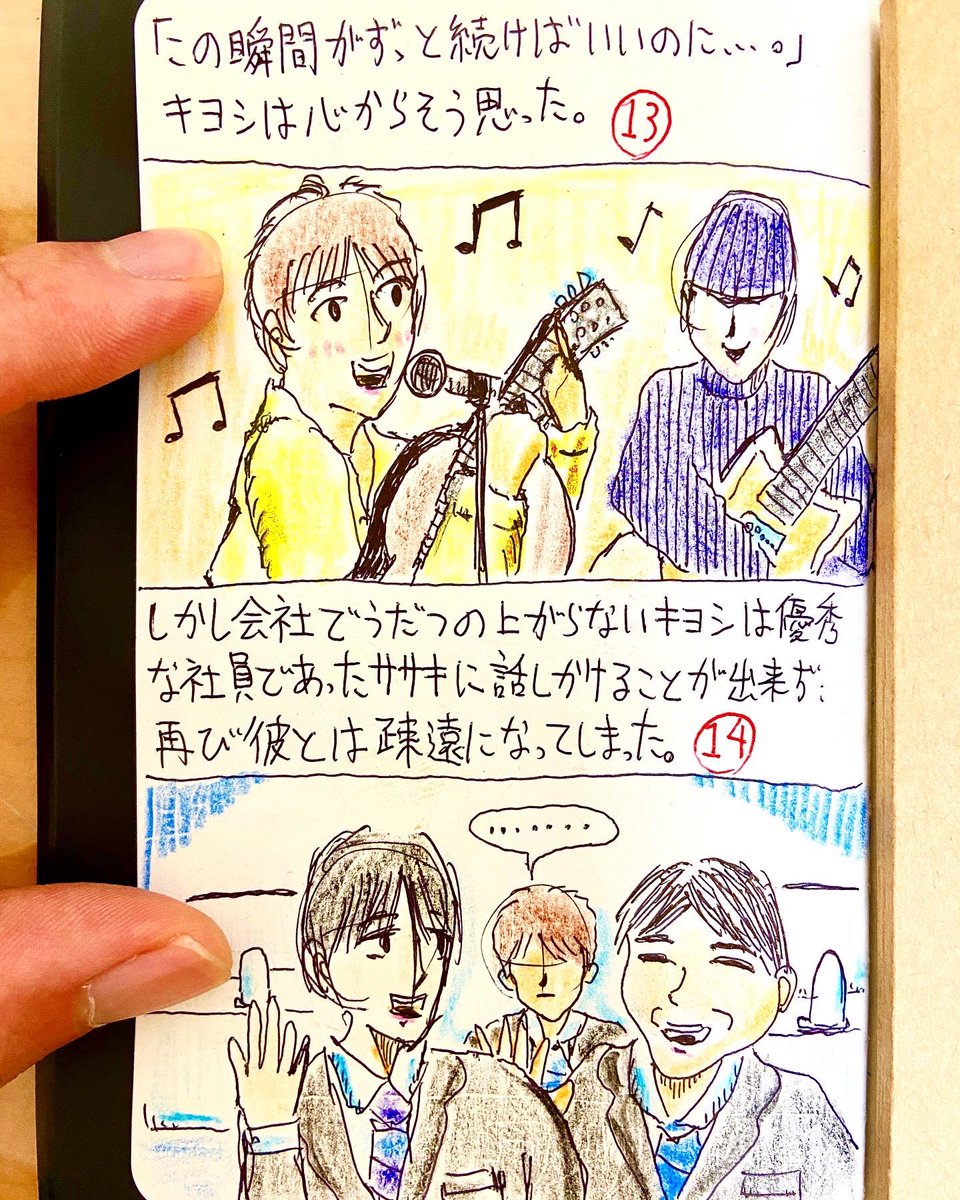 「この瞬間がずっと続けばいいのに、、、。」
キヨシは心からそう思った。 13
しかし会社でうだつの上がらないキヨシは優秀
な社員であったササキに話しかけることが出来ず、
再び彼とは疎遠になってしまった。 14
........